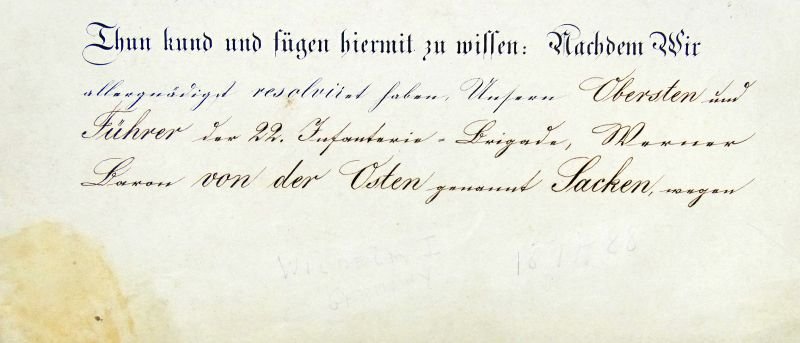 Thun kund und fügen hiermit zu wissen: Nachdem Wir
allergnädigst resolviret haben, Unsern Obersten und
Führer der 22. Infanterie-Brigade, Werner
Baron von der Osten genannt Sacken, wegen
Wilhelm I
Germany